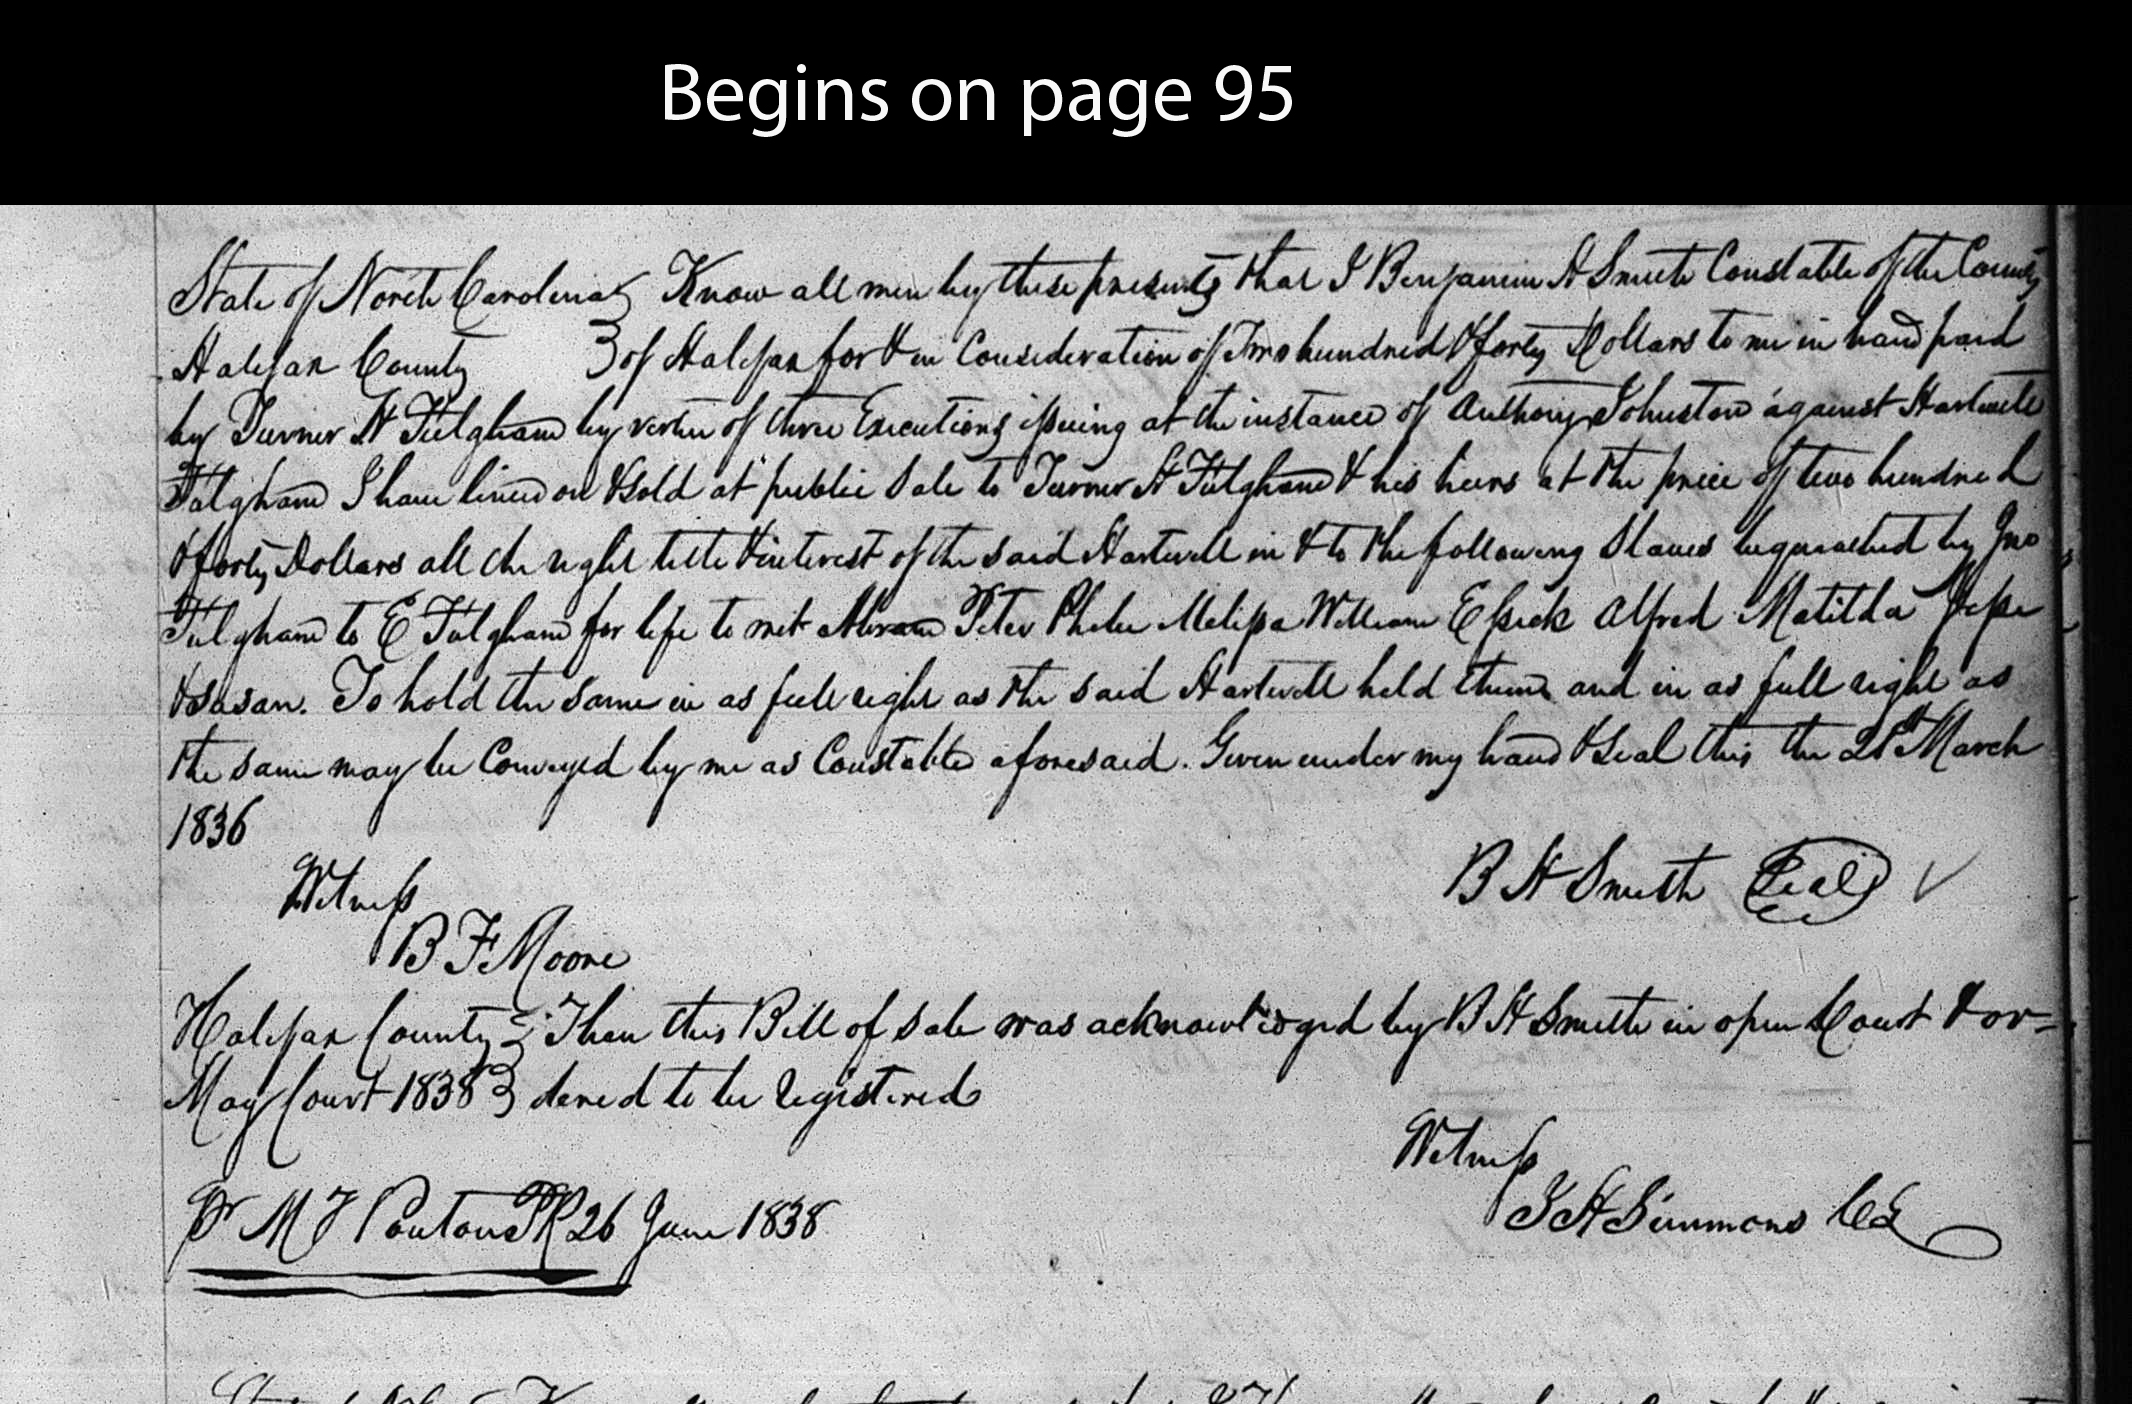 Begins on page 95
State of North Carolina } Know all men by these presents that I Benjamin H Smith Constable of the County
Halifax County } of Halifax for & in Consideration of Two hundred & forty Dollars to me in hand paid
by Turner H Fulgham by vertue of three Executions issuing at the instance of Anthony Johnston against Hartwell
Fulgham I have livied on & sold at public Sale to Turner H Fulgham & his heirs at the price of two hundred
& forty Dollars all the right title & interest of the said Hartwell in & to the following Slaves bequeathed by Jno
Fulgham to E Fulgham for life to wit Abram Peter Phebe Melissa William Essick Alfred Matilda Jesse
& Susan. To hold the same in as full right as the said Hartwell held them and in as full right as
the same may be Conveyed by me as Constable aforesaid. Given under my hand & Seal this the 21st March
1836
B H Smith Seal
Witness
B F Moore
Halifax County } Then this Bill of sale was acknowledged by B H Smith in open Court & or-
May Court 1838 } dered to be Registered
Witness
Pr M J Ponton PR 26 June 1838
J H Simmons Clk